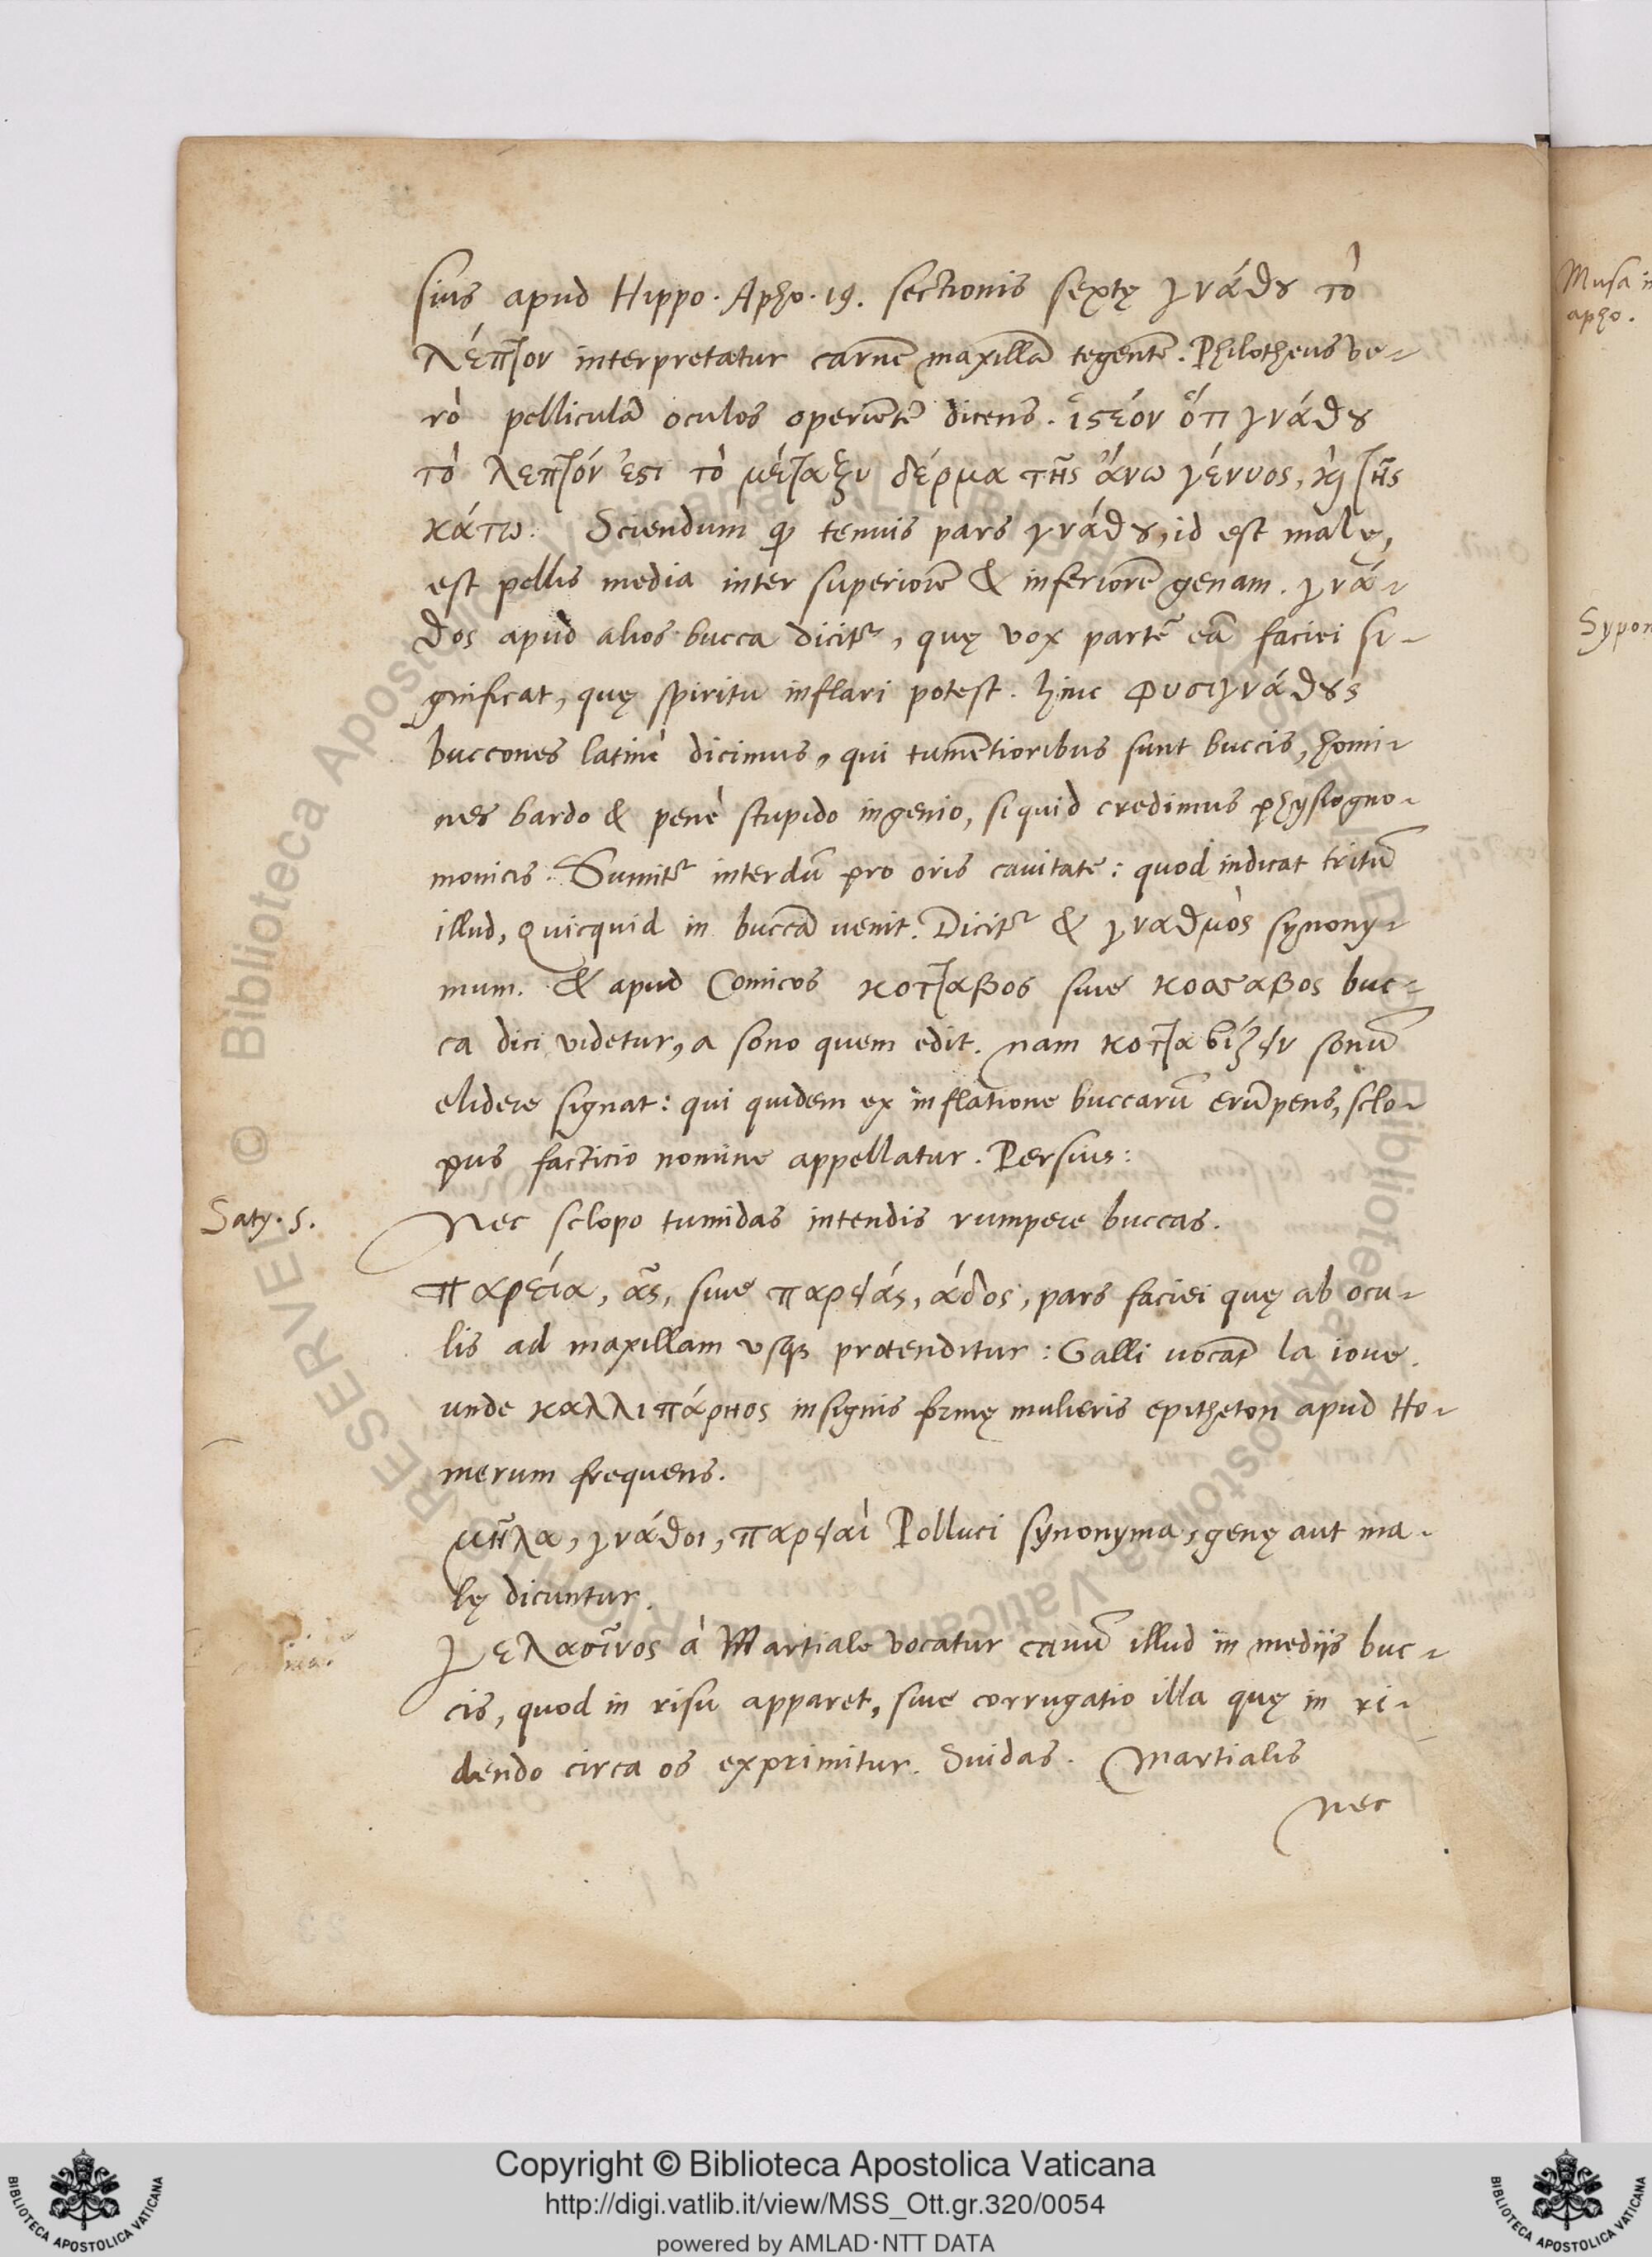 sius apud Hippo. Apho. 19. sectionis sextę γνάθȣ τὸ
λέπτον interpretatur carnẽ maxillã tegentẽ. Philotheus ve-
rò pelliculã oculos operientẽ dicens. ἰϛέον ὅτι γνάθȣ
τὸ λεπτόν ἐϛι τὸ μέταξυ δέρμα τῆς ἄνω γένυος, κỳ τῆς
κάτω. Sciendum ꝙ tenuis pars γνάθȣ, id est malę,
est pellis media inter superiorẽ & inferiorẽ genam. γνά-
θος apud alios bucca dicitᷣ, quę vox partẽ eã faciei si-
gnificat, quę spiritu inflari potest. hinc φυσιγνάθȣς
buccones latinè dicimus, qui tumẽtioribus sunt buccis, homi-
nes bardo & penè stupido ingenio, siquid credimus physiogno-
monicis. Sumitᷣ interdũ pro oris cavitate: quod indicat tritũ
illud, Quicquid in buccã venit. Dicitᷣ & γναθμὸς synony-
mum. & apud Comicos κοτταβος sive κοσσαβος buc-
ca dici videtur, a sono quem edit. nam κοτταβίζειν sonũ
elidere signat: qui quidem ex inflatione buccarũ erũpens, sclo-
pus facticio nomine appellatur. Persius:
Saty. 5.
Nec sclopo tumidas intendis rumpere buccas.
παρέια, ᾶς, sive παρειάς, άδος, pars faciei quę ab ocu-
lis ad maxillam usqꝫ protenditur: Galli vocãt la ioue.
unde καλλιπάρηος insignis formę mulieris epitheton apud Ho-
merum frequens.
μῆλα, γνάθοι, παρειαὶ Polluci synonyma, genę aut ma-
lę dicuntur.
γελασῖνος à Martiale vocatur cavũ illud in medijs buc-
cis, quod in risu apparet, sive corrugatio illa quę in ri-
dendo circa os exprimitur. Suidas. Martialis
Nec
Musa in
apho.
Sypon
Copyright © Biblioteca Apostolica Vaticana
http://digi.vatlib.it/view/MSS_Ott.gr.320/0054
powered by AMLAD·NTT DATA
BIBLIOTECA APOSTOLICA VATICANA
BIBLIOTECA APOSTOLICA VATICANA